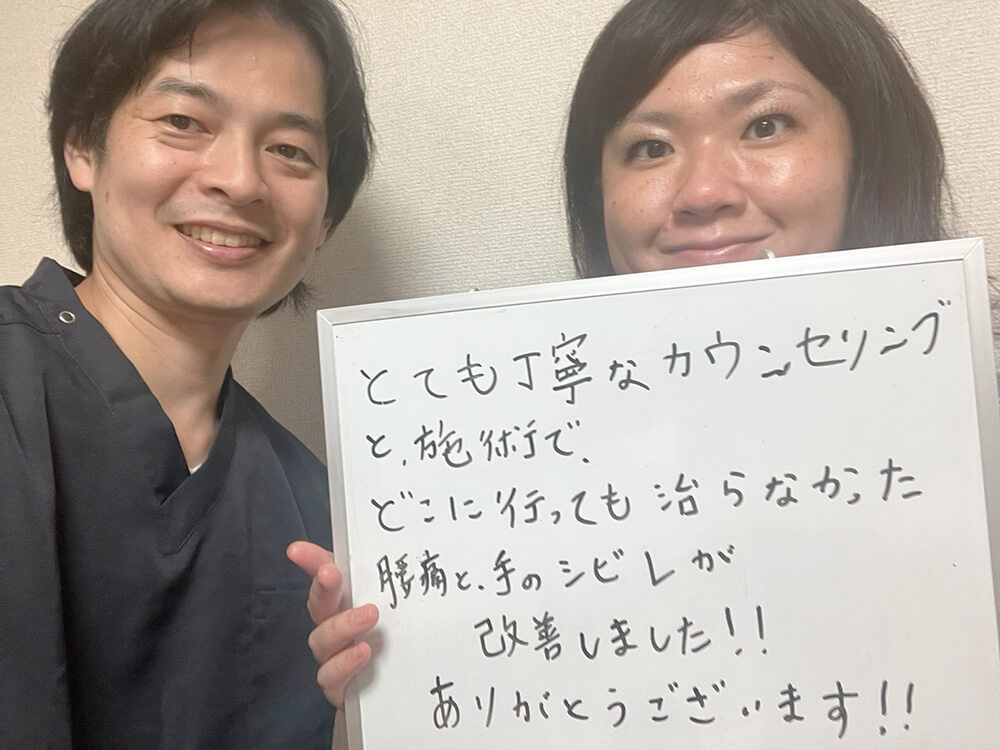 とても丁寧なカウンセリング
と、施術で、
どこに行っても治らなかった
腰痛と、手のシビレが
改善しました!!
ありがとうございます!!